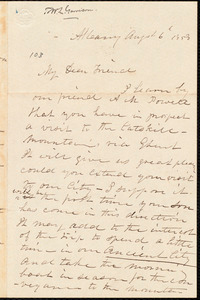 Albany Augst 6th 1858
My Dear Friend
I learn by
our friend A M Powell
that you have in prospect
a visit to the Catskill
Mountain, via Ghent
It will give us great pleas
could you extend your visit
to our City, I suppose it
will be the first time your Son
has come in this direction
It may add to the interest
of the trip to spend a little
time in our ancient City
And take the Morning
boat in season for the con
veyance to the Mountain